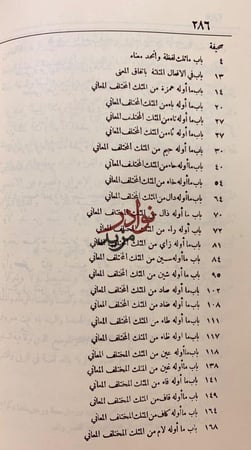 ٢٨٦
صحيفة
٤ باب ماثلث لفظة وأتحد معناه
١٣ باب في الافعال المثلثة باتفاق المعنى
١٤ باب ما أوله همزة من المثلث المختلف المعاني
٢٠ باب ما أوله باء من المثلث المختلف المعاني
٢٦ باب ما أوله تاء من المثلث المختلف المعاني
٢٧ باب ما أوله ثاء من المثلث المختلف المعاني
٣٠ باب ما أوله جيم من المثلث المختلف المعاني
٤٠ باب ما أوله حاء من المثلث المختلف المعاني
٥٤ باب ما أوله خاء من المثلث المختلف المعاني
٦٤ باب ما أوله دال من المثلث المختلف المعاني
٧٠ باب ما أوله ذال من المثلث المختلف المعاني
٧٢ باب ما أوله راء من المثلث المختلف المعاني
٨١ باب ما أوله زاي من المثلث المختلف المعاني
٨٤ باب ما أوله سين من المثلث المختلف المعاني
٩٥ باب ما أوله شين من المثلث المختلف المعاني
١٠٢ باب ما أوله صاد من المثلث المختلف المعاني
١٠٨ باب ما أوله ضاد من المثلث المختلف المعاني
١١١ باب ما أوله طاء من المثلث المختلف المعاني
١١٧ باب ما اوله ظاء من المثلث المختلف المعاني
١١٨ باب ما أوله عين من المثلث المختلف المعاني
١٣٨ باب ما أوله غين من المثلث المختلف المعاني
١٤١ باب ما أوله فاء من المثلث المختلف المعاني
١٤٩ باب ما أوله قاف من المثلث المختلف المعاني
١٦٤ باب ما أوله كاف من المثلث المختلف المعاني
١٦٨ باب ما أوله لام من المثلث المختلف المعاني
نوادر
مزيد